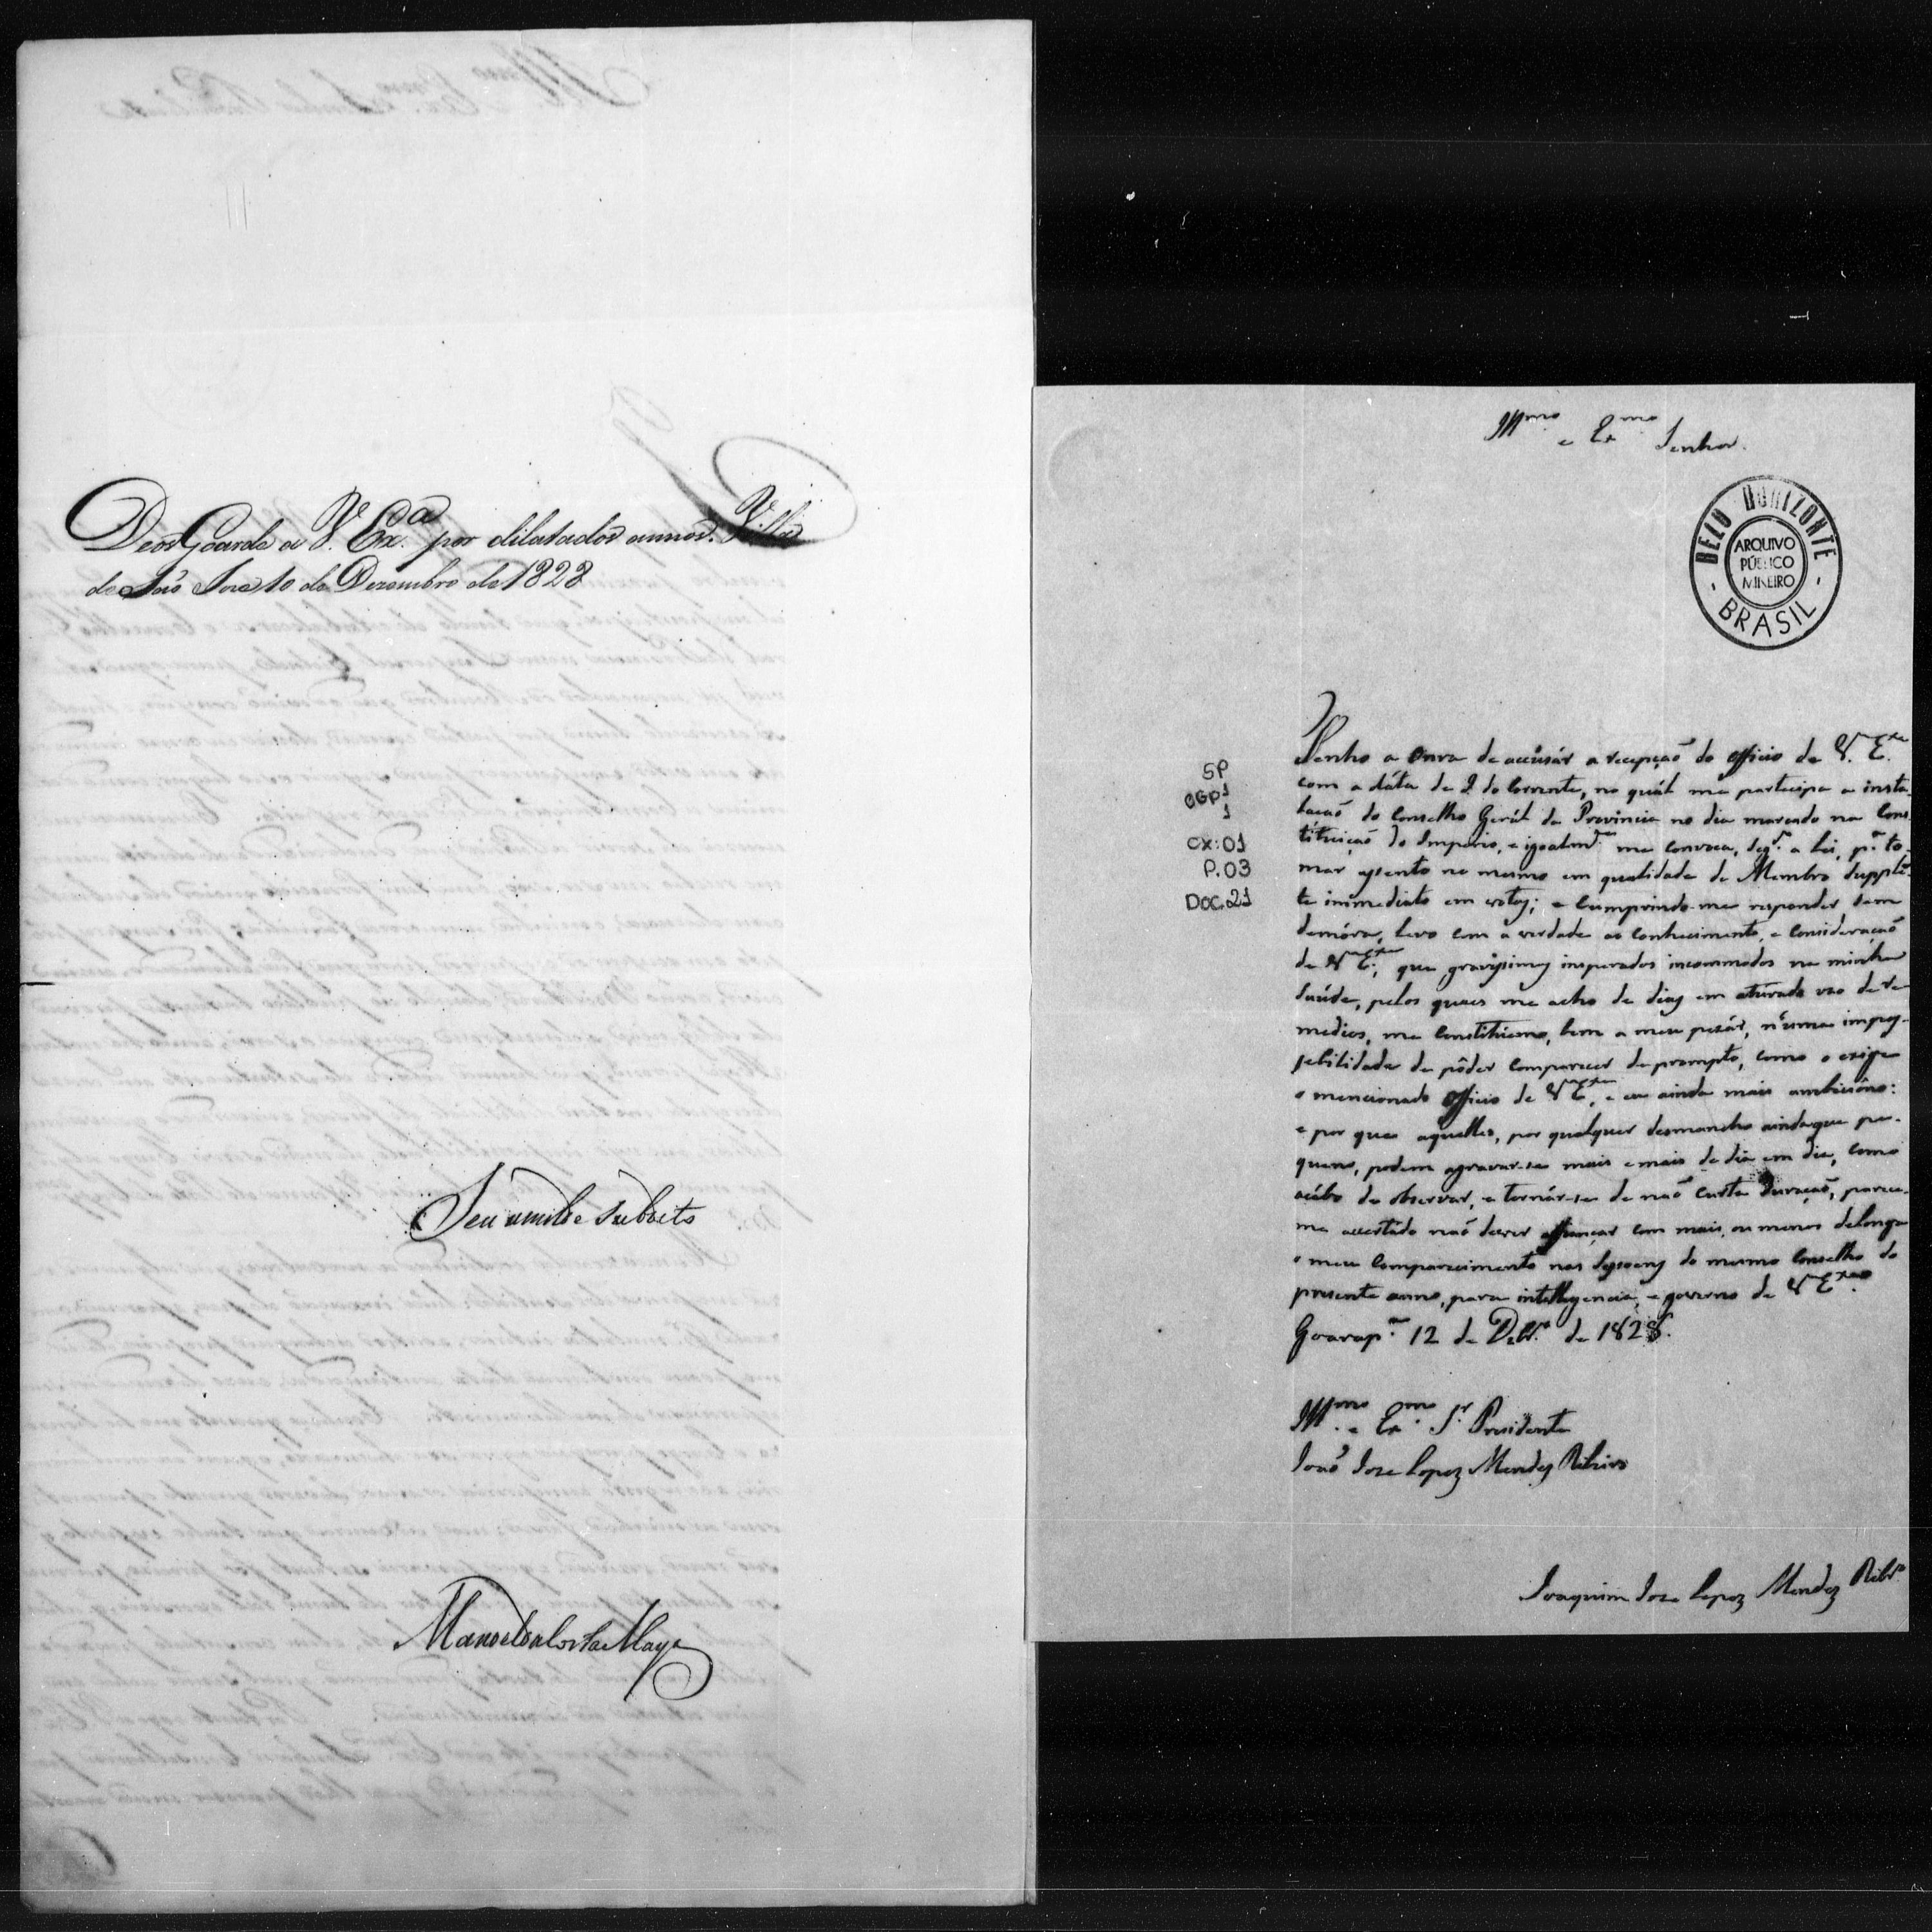 Deos Goarde a V. Exª por dilatados annos. Villa
de São Jose 10 de Dezembro de 1828
Seu umilde Subdito
Manoel da Costa Maya
Illmo e Exmo Senhor.
BELO HORIZONTE
ARQUIVO
PÚBLICO
MINEIRO
BRASIL
SP
OGP1
1
CX:01
P.03
DOC.21
Tenho a Onra de accusár a recepçaõ do officio de V. Exª
com a dáta de 2 do Corrente, no quál me participa a insta-
laçaõ do Conselho Gerál da Provincia no dia marcado na Cons
títuiçaõ do Imperio, e igoalmte me Convoca, segdo a Lei, pª to-
mar assento no mesmo em qualidade de Membro Supplẽ-
te immediato em votos; e Cumprindo-me responder sem
demóra, levo com a verdade ao Conhecimento, e Consideraçaõ
de V Exª, que gravissimos insperados incommodos na minha
Saúde, pelos quaes me acho de dias em aturado uso de re-
medios, me Constituem, bem a meu pezár, n'uma impos-
sebilidade de pôder Comparecer de prompto, como o exige
o mencionado officio de V Exª, e eu ainda mais ambiciôno:
e por que aquelles, por qualquer desmancho aindaque pe-
queno, podem agravar-se mais e mais de dia em dia, como
acábo de observar, e tornár-se de naõ Curta duraçaõ, parece-
me acertado naõ dever affiançar com mais, ou menos delonga
o meu Comparecimento nas Sessoens do mesmo Conselho do
presente anno, para intelligencia, e governo de V Exª.
Goarapª 12 de Dezbrº de 1828.
Illmo e Exmo Sr Presidente
Joaõ Joze Lopez Mendes Ribeiro
Joaquim Joze Lopez Mendez Ribrº